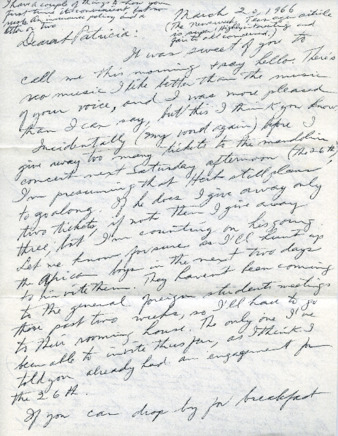 I have a couple of things to show you
first time
people. An insurance policy and a
letter or two
March 22, 1966
(The news article
is super! Highly interesting and
fair to all concerned.)
Dearest Patricia:
It was sweet of you to
call me this morning & say hello. There's
no music I like better than the music
of your voice, and I was more pleased
than I can say, but this I think you know
Incidentally (my word again) before I
give away too many tickets to the mandolin
concert next Saturday afternoon (the 26th)
I'm presuming that Herb still plans
to go along. If he does, I give away only
two tickets, if not then I give away
three, but I'm counting on his going
Let me know for sure as I'll hunt up
the African boys in the next two days
to invite them. They haven't been coming
to the general foreign students meetings
these past two weeks, so I'll have to go
to their rooming house. The only one I've
been able to invite thus far, as I think I
told you already had an engagement for
the 26th.
If you can drop by for breakfast